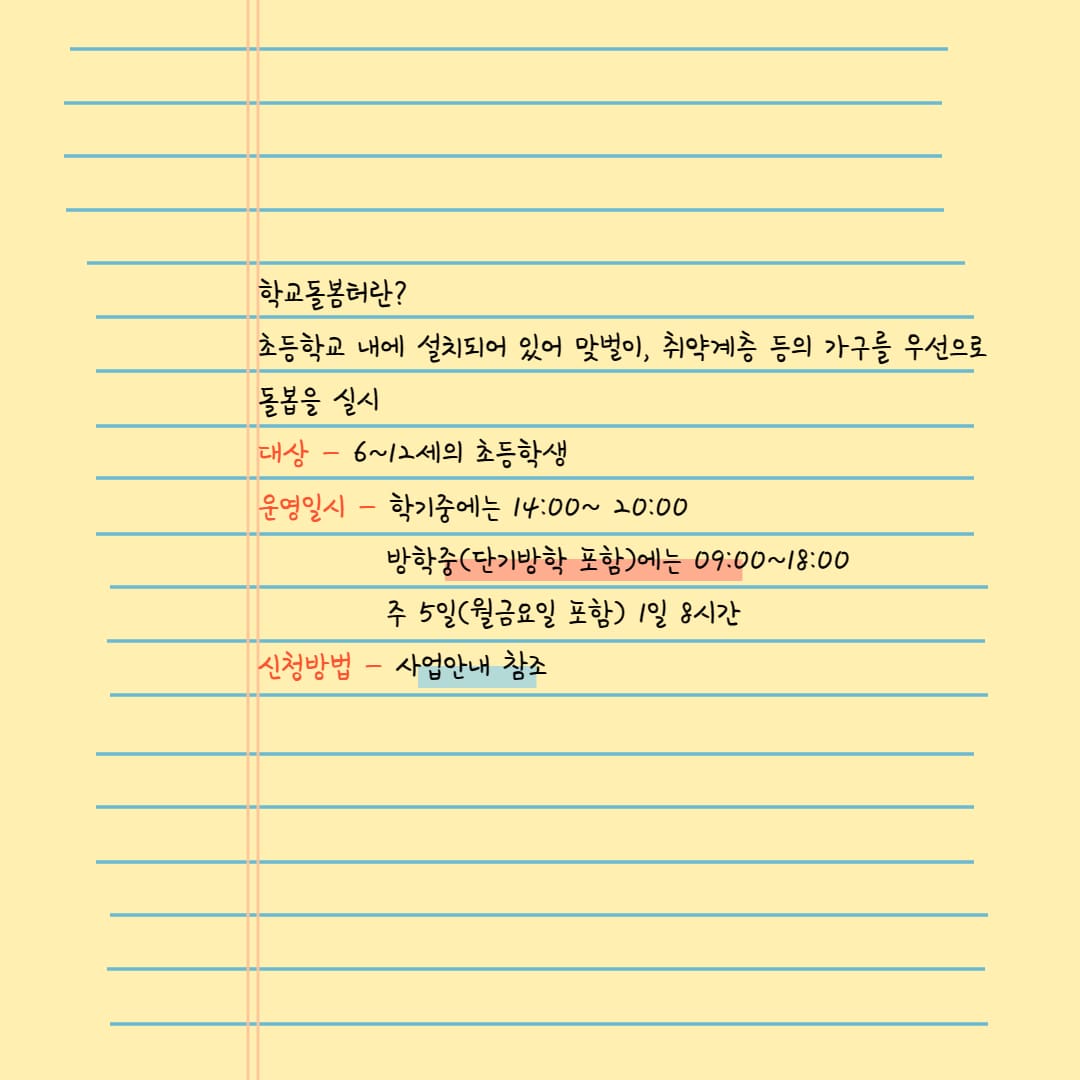 학교돌봄터란?
초등학교 내에 설치되어 있어 맞벌이, 취약계층 등의 가구를 우선으로
돌봅을 실시
대상 - 6~12세의 초등학생
운영일시 - 학기중에는 14:00~ 20:00
방학중(단기방학 포함)에는 09:00~18:00
주 5일(월금요일 포함) 1일 8시간
신청방법 - 사업안내 참조